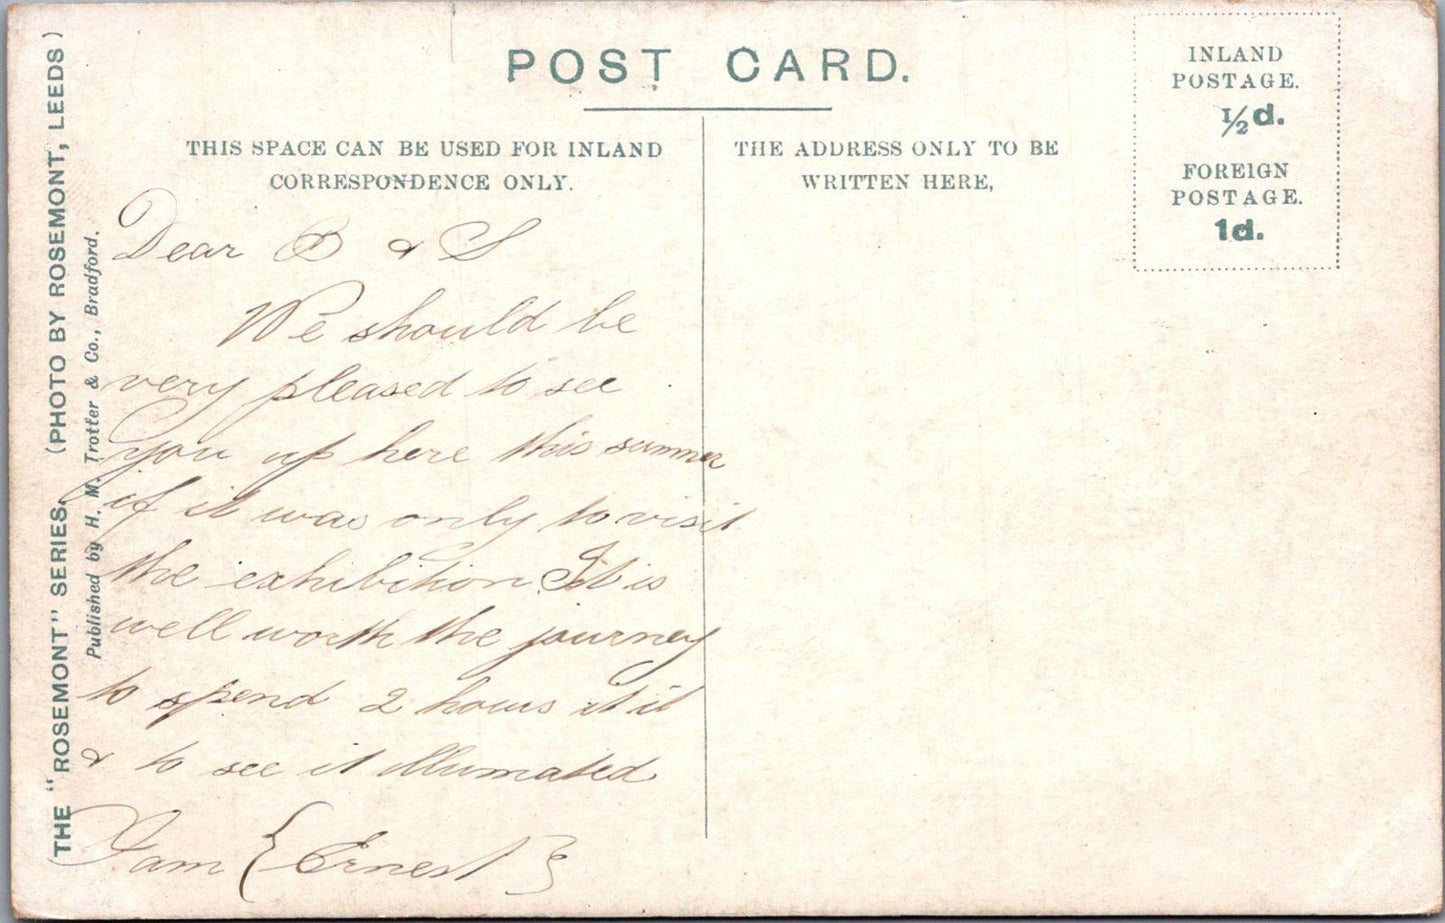 POST CARD.
INLAND
POSTAGE.
½d.
FOREIGN
POSTAGE.
1d.
THIS SPACE CAN BE USED FOR INLAND
CORRESPONDENCE ONLY.
THE ADDRESS ONLY TO BE
WRITTEN HERE,
THE "ROSEMONT" SERIES. (PHOTO BY ROSEMONT, LEEDS)
Published by H. M. Trotter & Co., Bradford.
Dear B & S
We should be
very pleased to see
you up here this summer
if it was only to visit
the exhibition. It is
well worth the journey
to spend 2 hours at it
& to see it illumated
{ Ernest }